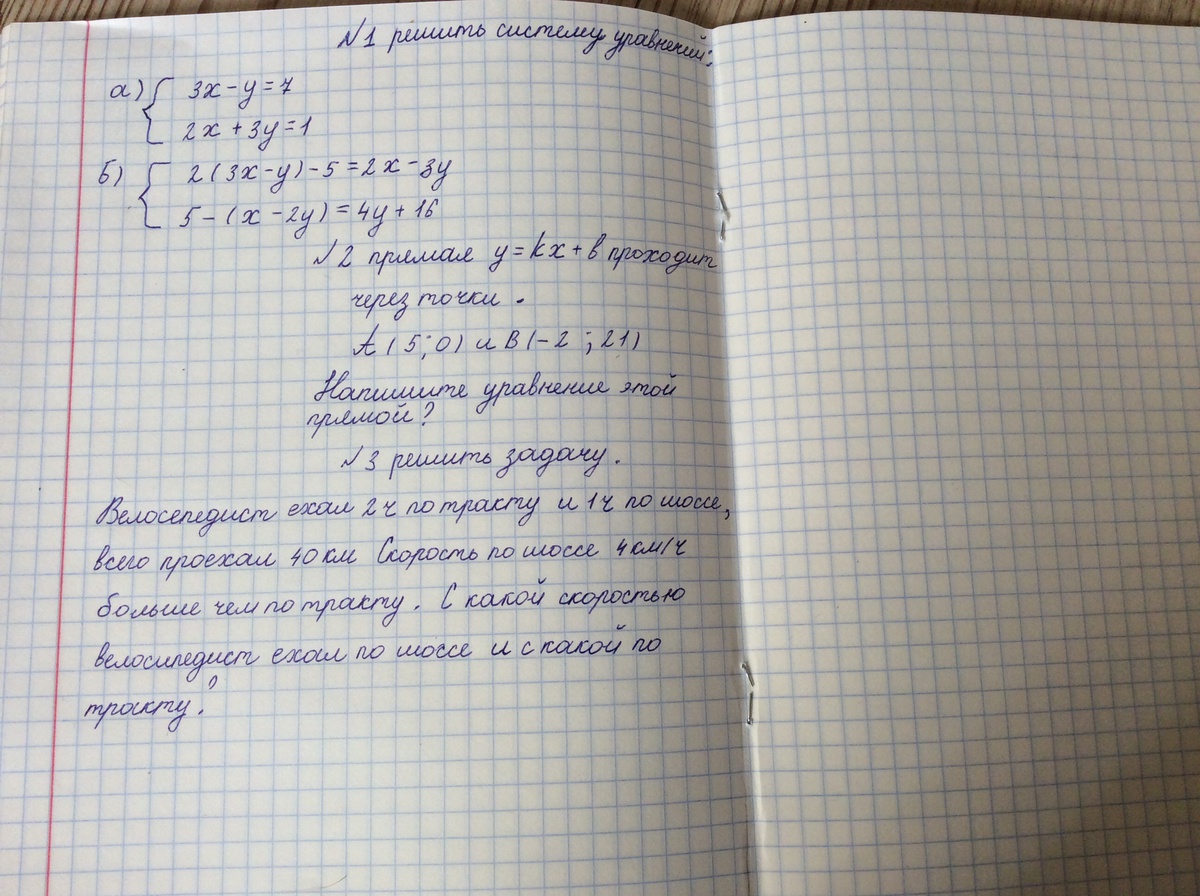 №1 решить систему уравнений:
а) { 3x-y=7
2x+3y=1
Б) { 2(3x-y)-5=2x-3y
5-(x-2y)=4y+16
№2 прямая y=kx+b проходит
через точки.
A(5;0) и B(-2;21)
Напишите уравнение этой
прямой?
№3 решить задачу.
Велосепедист ехал 2ч по тракту и 1ч по шоссе,
всего проехал 40 км Скорость по шоссе 4км/ч
больше чем по тракту. С какой скоростью
велосипедист ехал по шоссе и с какой по
тракту?